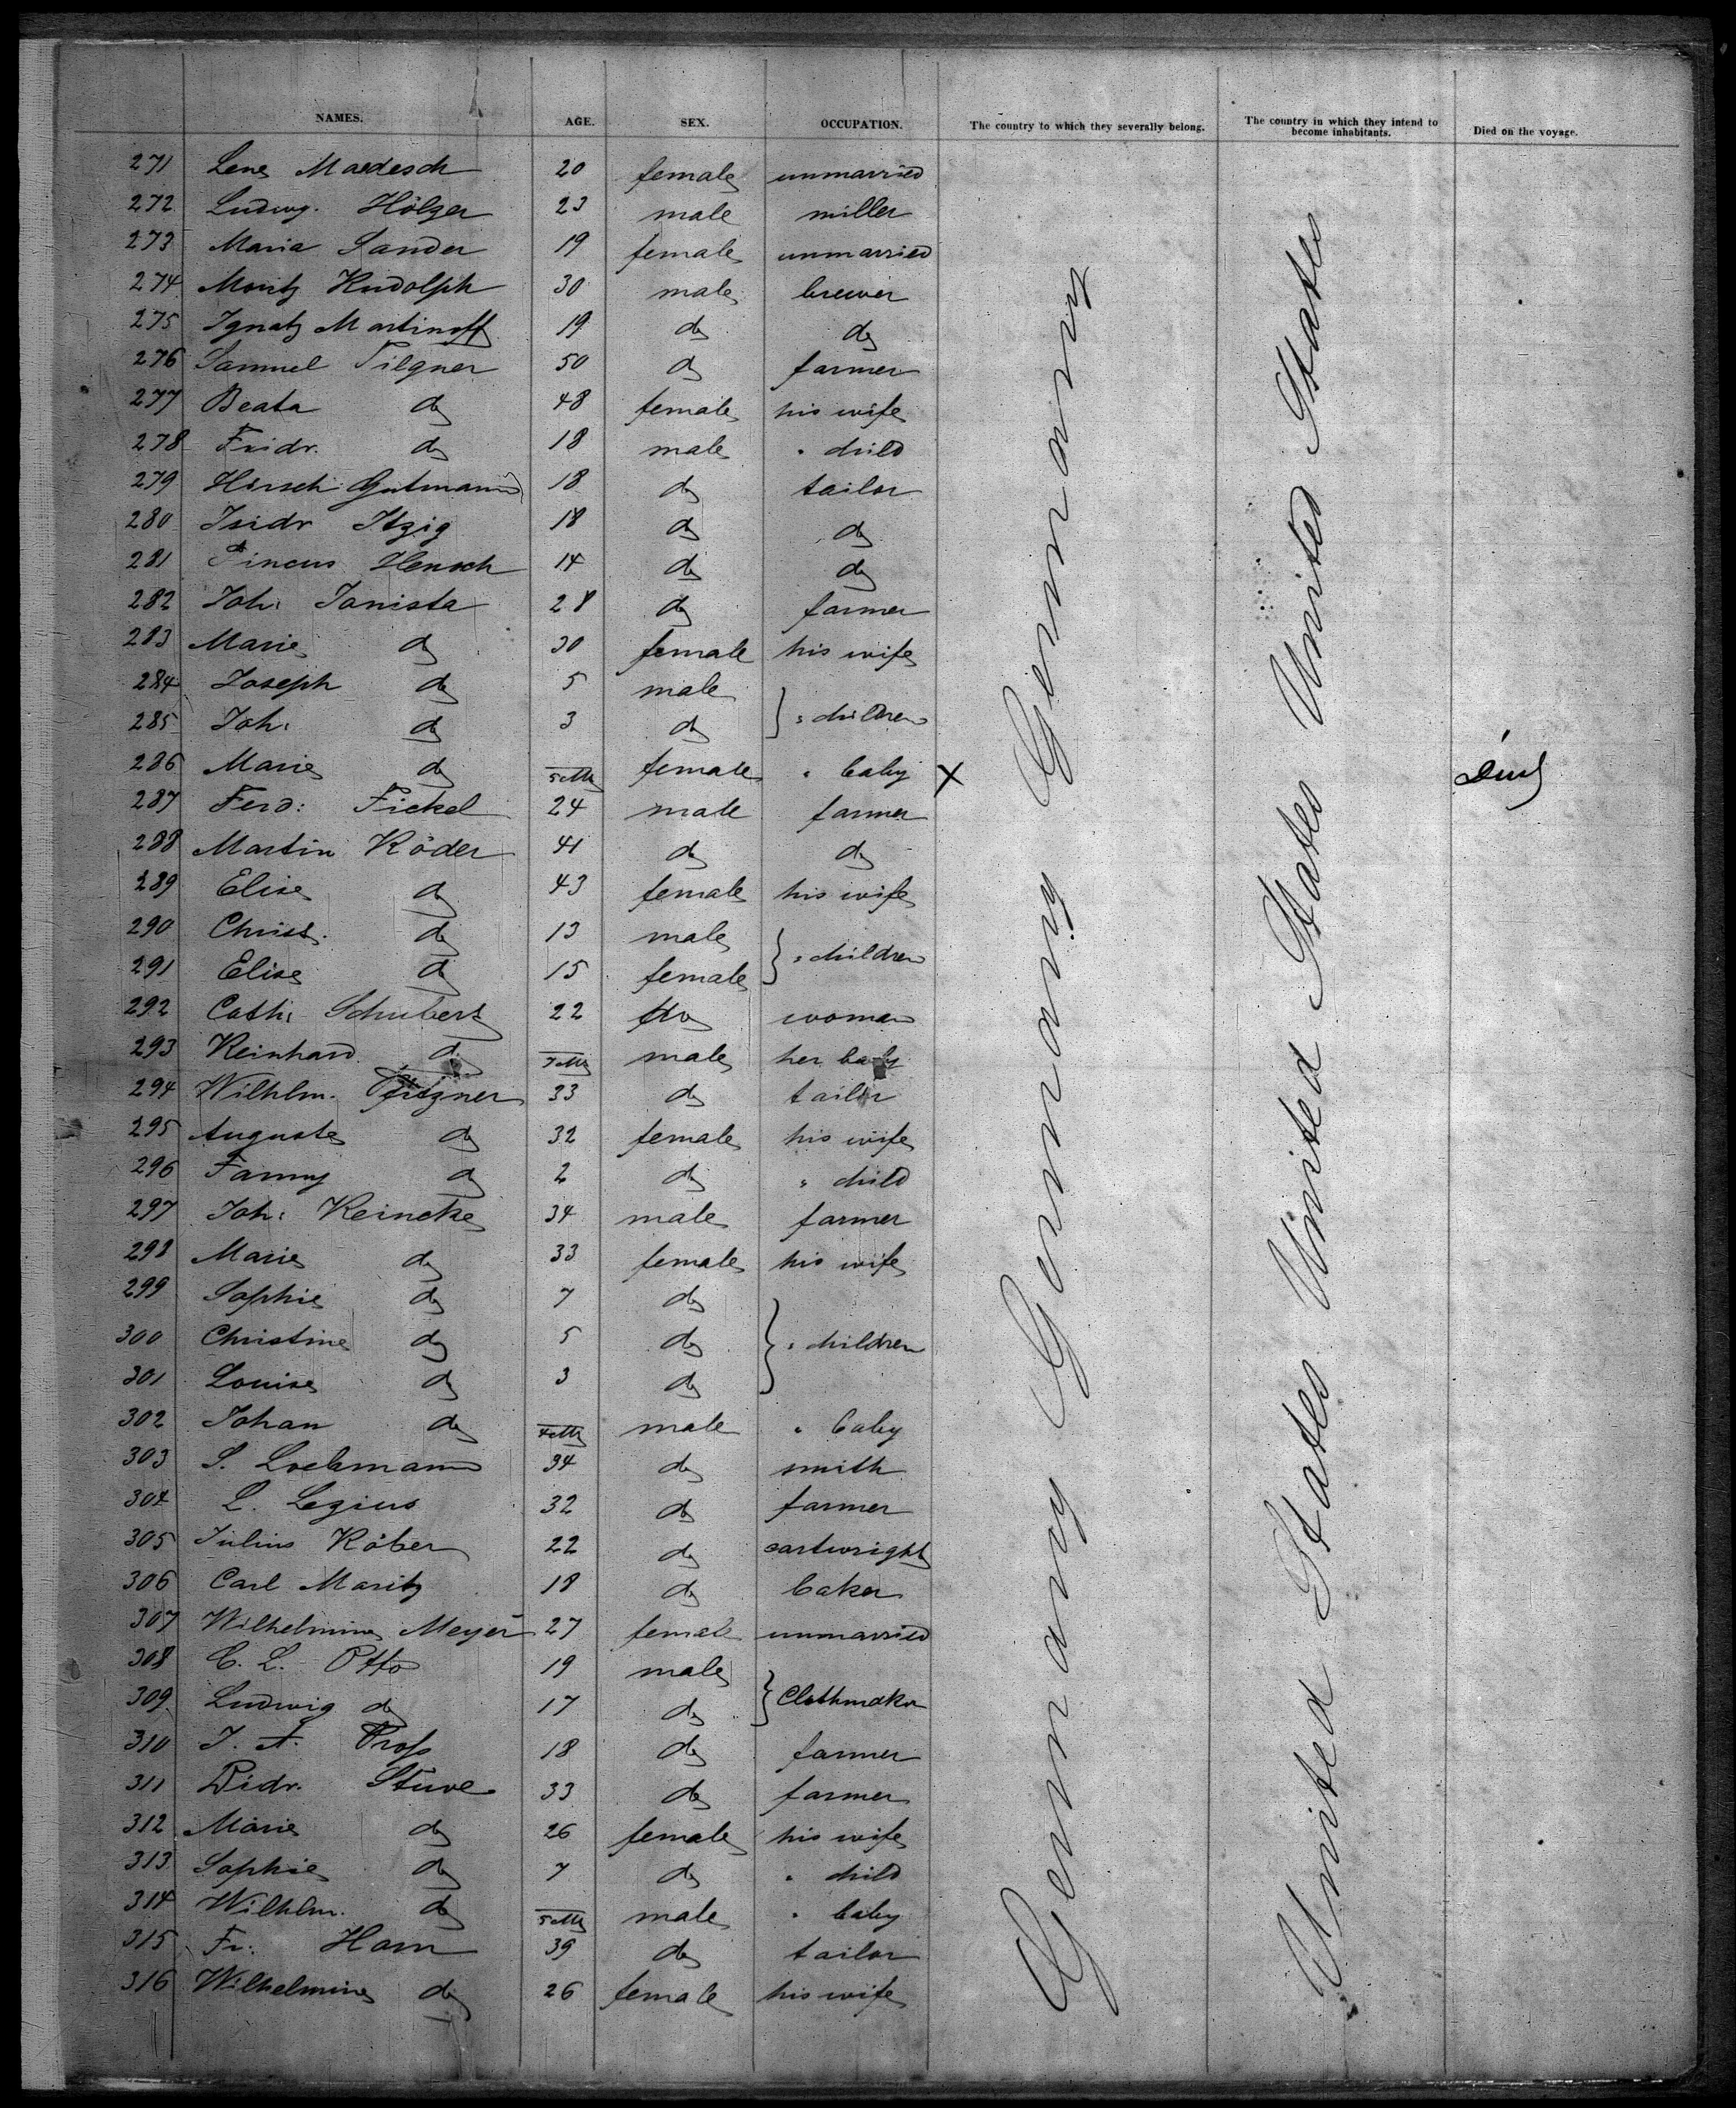 NAMES. AGE. SEX. OCCUPATION. The country to which they severally belong. The country in which they intend to become inhabitants. Died on the voyage.
271 Lene Maedesch 20 female unmarried
272 Ludwg. Hölzer 23 male miller
273 Maria Sander 19 female unmarried
274 Moritz Rudolph 30 male brewer
275 Ignatz Martinoff 19 do do
276 Samuel Tilgner 50 do farmer
277 Beata do 48 female his wife
278 Fridr. do 18 male " child
279 Hirsch Gutmann 18 do tailor
280 Isidr Itzig 18 do do
281 Pincus Henoch 14 do do
282 Joh: Janista 28 do farmer
283 Marie do 30 female his wife
284 Joseph do 5 male
285 Joh: do 3 do } " children
286 Marie do 5 Mts female " baby X died
287 Ferd: Fickel 24 male farmer
288 Martin Röder 41 do do
289 Elise do 43 female his wife
290 Christ. do 13 male
291 Elise do 15 female } " children
292 Cath: Schubert 22 do woman
293 Reinhard do 7 Mts male her baby
294 Wilhlm. Pfitzner 33 do tailor
295 Auguste do 32 female his wife
296 Fanny do 2 do " child
297 Joh: Reincke 34 male farmer
298 Marie do 33 female his wife
299 Sophie do 7 do
300 Christine do 5 do } " children
301 Louise do 3 do
302 Johan do 4 Mts male " baby
303 S. Loehmann 34 do smith
304 L. Legius 32 do farmer
305 Julius Röber 22 do cartwright
306 Carl Moritz 18 do baker
307 Wilhelmine Meyer 27 female unmarried
308 C. L. Otto 19 male
309 Ludwig do 17 do } Clothmaker
310 J. A. Pross 18 do farmer
311 Didr. Stuve 33 do farmer
312 Marie do 26 female his wife
313 Sophie do 7 do " child
314 Wilhlm. do 5 Mts male " baby
315 Fr: Horn 39 do tailor
316 Wilhelmine do 26 female his wife
Germany Germany Germany
United States United States United States